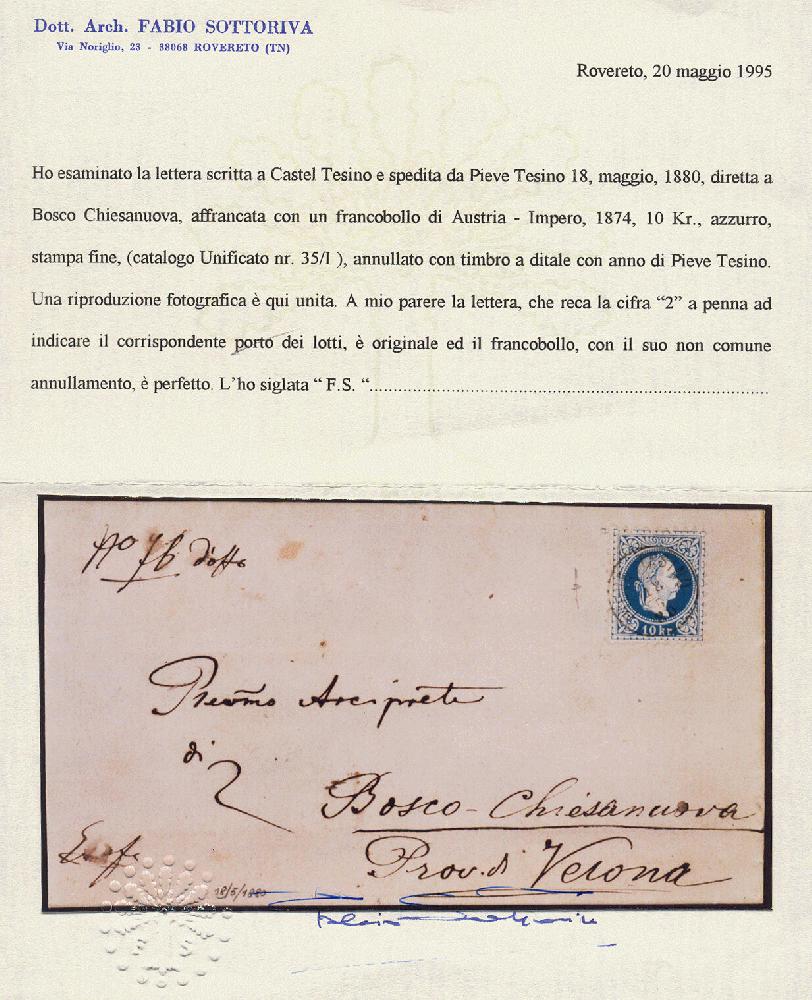 Dott. Arch. FABIO SOTTORIVA
Via Noriglio, 23 - 38068 ROVERETO (TN)
Rovereto, 20 maggio 1995
Ho esaminato la lettera scritta a Castel Tesino e spedita da Pieve Tesino 18, maggio, 1880, diretta a
Bosco Chiesanuova, affrancata con un francobollo di Austria - Impero, 1874, 10 Kr., azzurro,
stampa fine, (catalogo Unificato nr. 35/I ), annullato con timbro a ditale con anno di Pieve Tesino.
Una riproduzione fotografica è qui unita. A mio parere la lettera, che reca la cifra “2” a penna ad
indicare il corrispondente porto dei lotti, è originale ed il francobollo, con il suo non comune
annullamento, è perfetto. L’ho siglata “ F.S. “.....................................................................................
No 76
10 kr.
Arciprete
di
2
Bosco-Chiesanuova
Prov. di Verona
18/5/1880